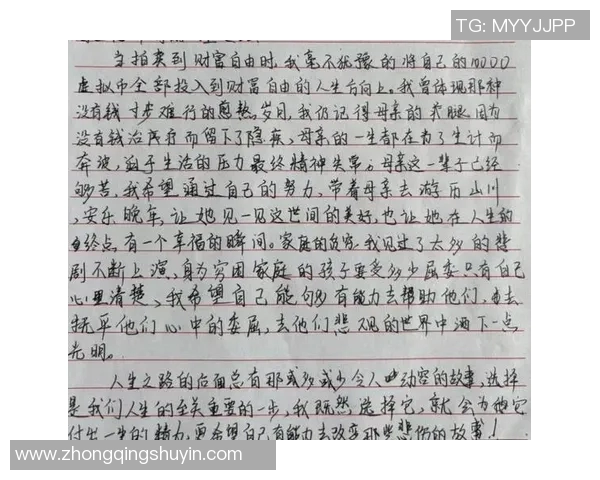 TG: MYYJJPP
当拍卖到财富自由时,我毫不犹豫的将自己的10000
虚拟币全部投入到财富自由的人生方向上。我曾体现那种
没有钱寸步难行的 岁月,我仍记得母亲的 腿因为
没有钱治疗而留下了隐疾,母亲的一生都在为了生计而
奔波,迫于生活的压力最终精神失常。母亲这一辈子已经
够苦,我希望通过自己的努力,带着母亲去游历山川
,安乐晚年,让她见一见这世间的美好,也让她在人生的
终点有一个幸福的瞬间。家庭的贫穷,我见过了太多的悲
剧不断上演,身为穷困家庭的孩子要受多少屈委只有自己
心里清楚,我希望自己能够有能力去帮助他们,去
抚平他们心中的委屈,去他们悲观的世界中洒下一点
光明。
人生之路的后面总有那或多或少令人动容的故事,选择
是我们人生的至关重要的一步,我既然选择它,就会为他
付出一生的精力,更希望自己有能力去改变那些悲伤的故事!
www.zhongqingshuyin.com